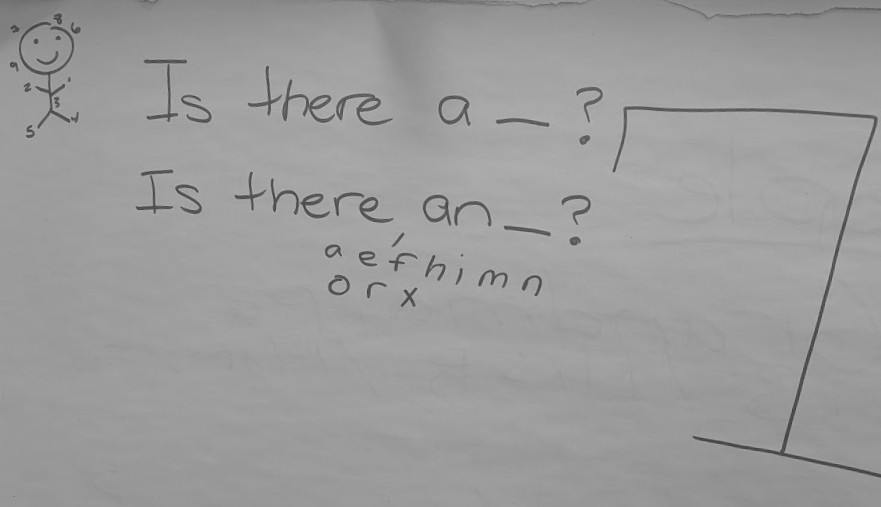 Is there a _ ?
Is there an _ ?
a e f h i m n
o r x
7 8 6
9
2 1
3
5 4